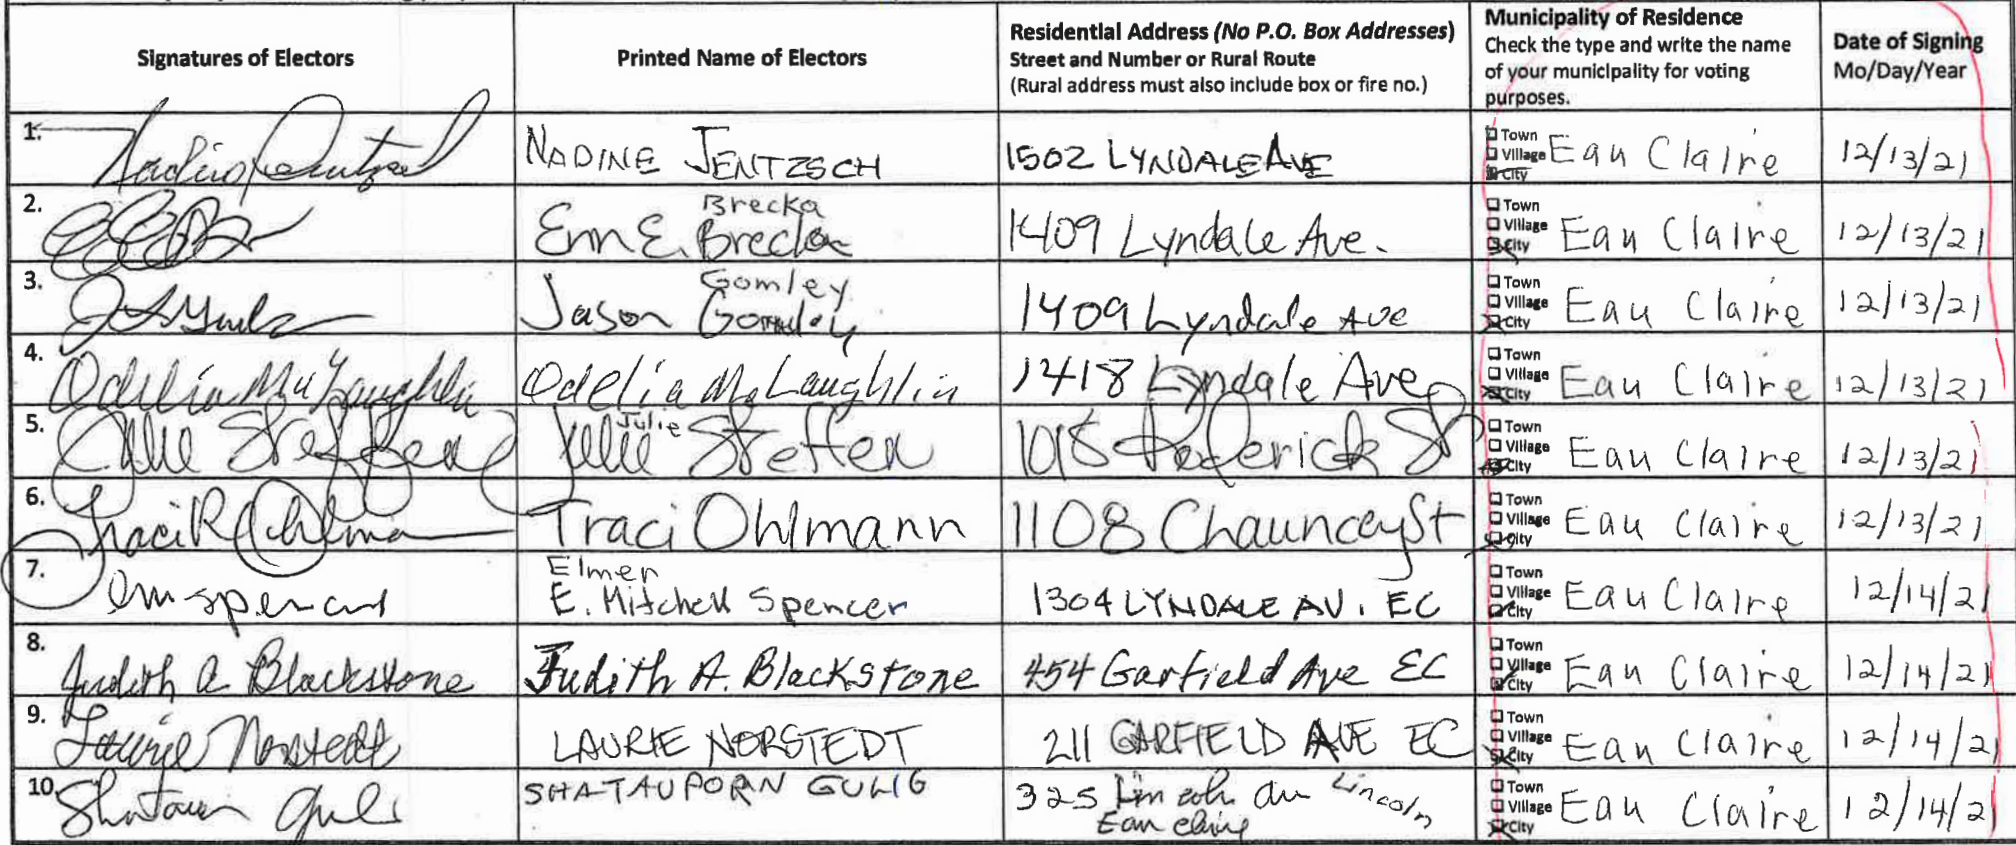 Signatures of Electors
Printed Name of Electors
Residential Address (No P.O. Box Addresses)
Street and Number or Rural Route
(Rural address must also include box or fire no.)
Municipality of Residence
Check the type and write the name
of your municipality for voting
purposes.
Date of Signing
Mo/Day/Year
1. NADINE JENTZSCH 1502 LYNDALE AVE Town Village City Eau Claire 12/13/21
2. Brecka
Erin E. Brecka 1409 Lyndale Ave. Town Village City Eau Claire 12/13/21
3. Gomley
Jason Gomley 1409 Lyndale Ave Town Village City Eau Claire 12/13/21
4. Odelia McLaughlin Odelia McLaughlin 1418 Lyndale Ave Town Village City Eau Claire 12/13/21
5. Julie Steffen Julie
Julie Steffen 1015 Roderick St Town Village City Eau Claire 12/13/21
6. Traci R Ohlmann Traci Ohlmann 1108 Chauncey St Town Village City Eau Claire 12/13/21
7. em spencer Elmer
E. Mitchell Spencer 1304 LYNDALE AV. EC Town Village City Eau Claire 12/14/21
8. Judith A Blackstone Judith A. Blackstone 454 Garfield Ave EC Town Village City Eau Claire 12/14/21
9. Laurie Norstedt LAURIE NORSTEDT 211 GARFIELD AVE EC Town Village City Eau Claire 12/14/21
10. SHATAUPORN GULIG 325 Lincoln av Lincoln
Eau Claire Town Village City Eau Claire 12/14/21